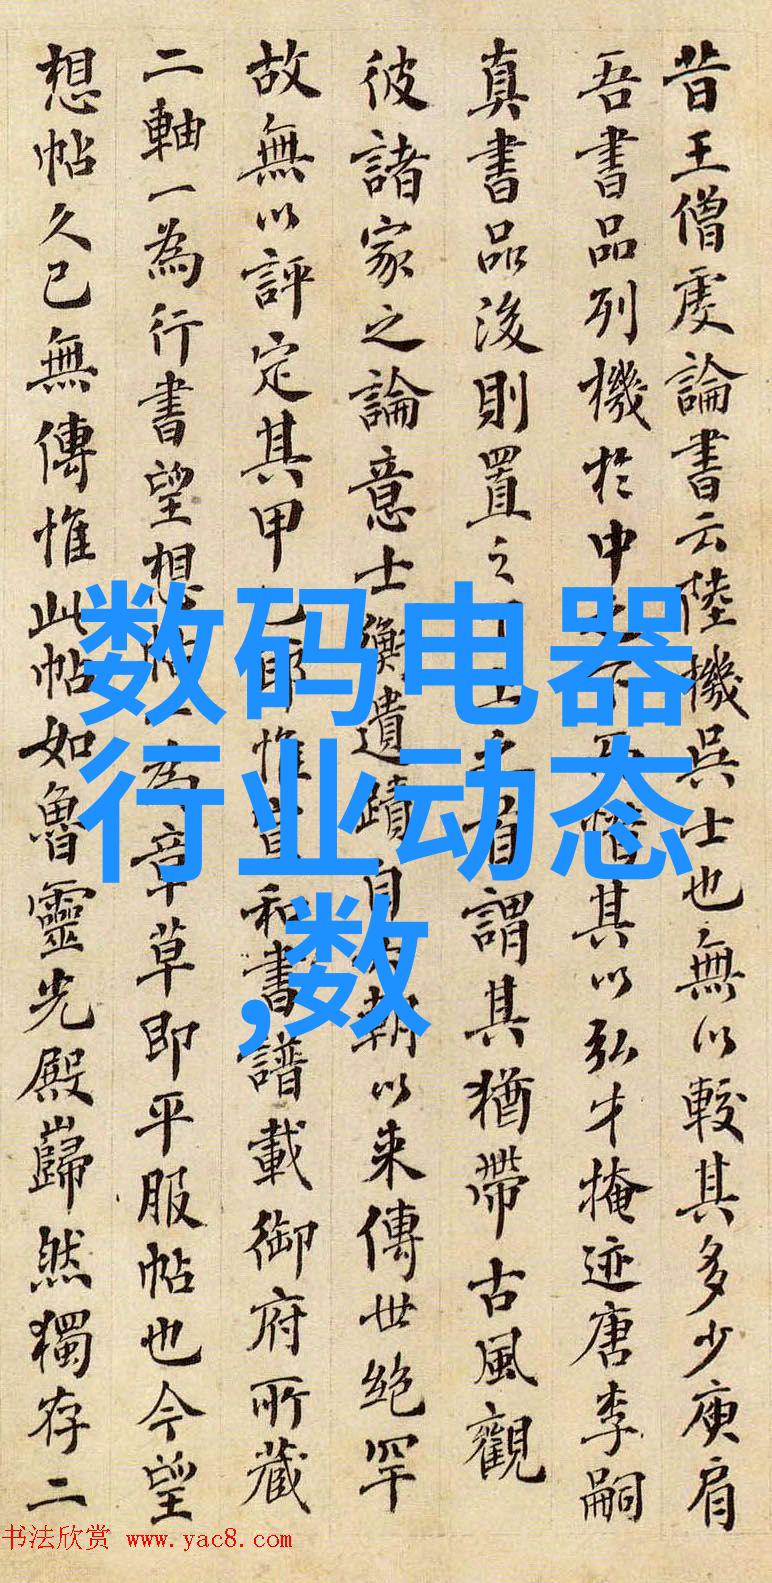 昔王僧虔論書云陸機吳士也無以較其多少庾肩
吾書品列機於中之下而惜其以弘才掩迹唐李嗣
真書品後則置之下上之首謂其猶帶古風觀
彼諸家之論意士衡遺蹟自六朝以来傳世絶罕
故無以評定其甲乙耶惟宣和書譜載御府所藏
二軸一為行書望想帖一為章草即平服帖也今望
想帖久已無傳惟此帖如魯靈光殿巋然獨存二
数码电器
行业动态
,数
书法欣赏 www.yac8.com